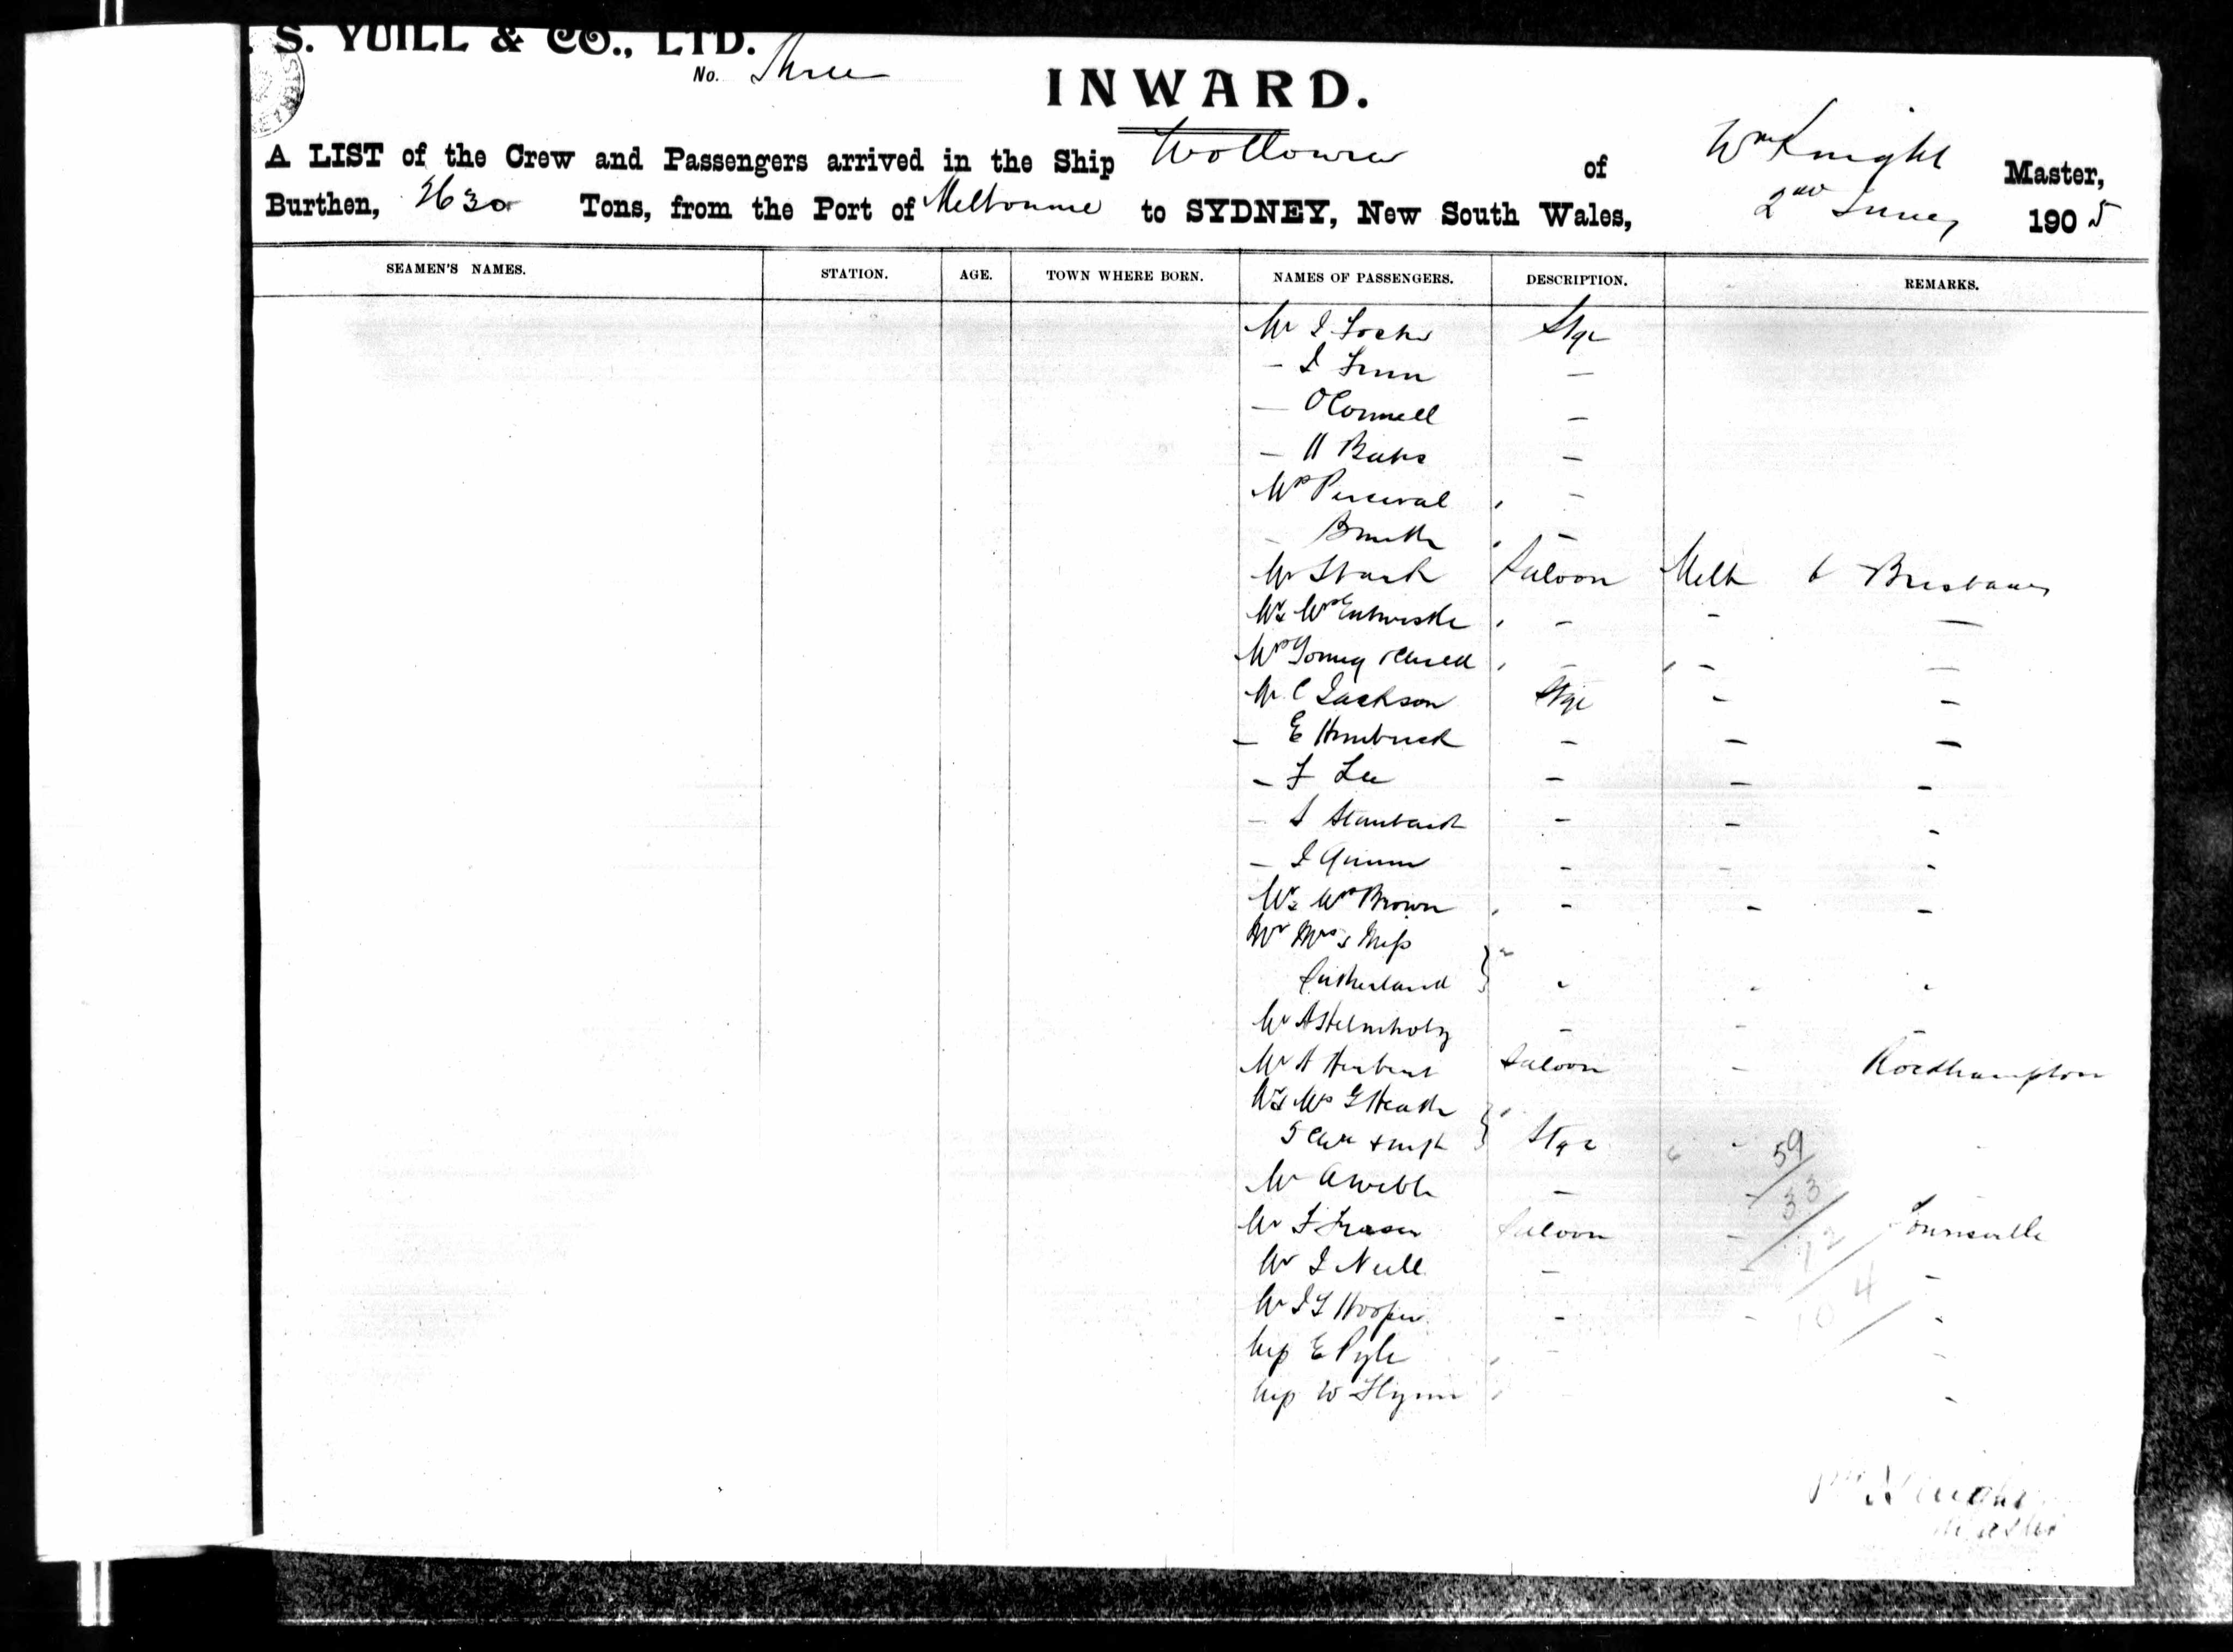 S. YUILL & CO., LTD.
No. Three
INWARD.
A LIST of the Crew and Passengers arrived in the Ship Wollowra of Wm Knight Master,
Burthen, 2630 Tons, from the Port of Melbourne to SYDNEY, New South Wales, 2nd June, 1905
SEAMEN'S NAMES. STATION. AGE. TOWN WHERE BORN. NAMES OF PASSENGERS. DESCRIPTION. REMARKS.
Mr Stge
- —
— O'Connell —
— H —
Mrs Percival , —
- Smith , —
Mr Saloon Melb to Brisbane
Mr & Mrs Entwistle , — — —
Mrs Young & Child , — , — —
Mr C Jackson Stge — —
— E — — —
— F Lee — — —
— S — — —
— J Quinn — — —
Mr & Mrs Brown , — — —
Mr Mrs & Miss
Sutherland } " " "
Mr A Helmholz — — —
Mr A Herbert Saloon — Rockhampton
Mr & Mrs G Heath
5 Chn & inft } Stge
Mr A Webb — —
Mr F Fraser Saloon — Townsville
Mr J Neill — — —
Mr J L Hooper — — —
Miss E Pyle , — —
Miss W Flynn , —
59
33
12
4
10
Wm Knight
Master